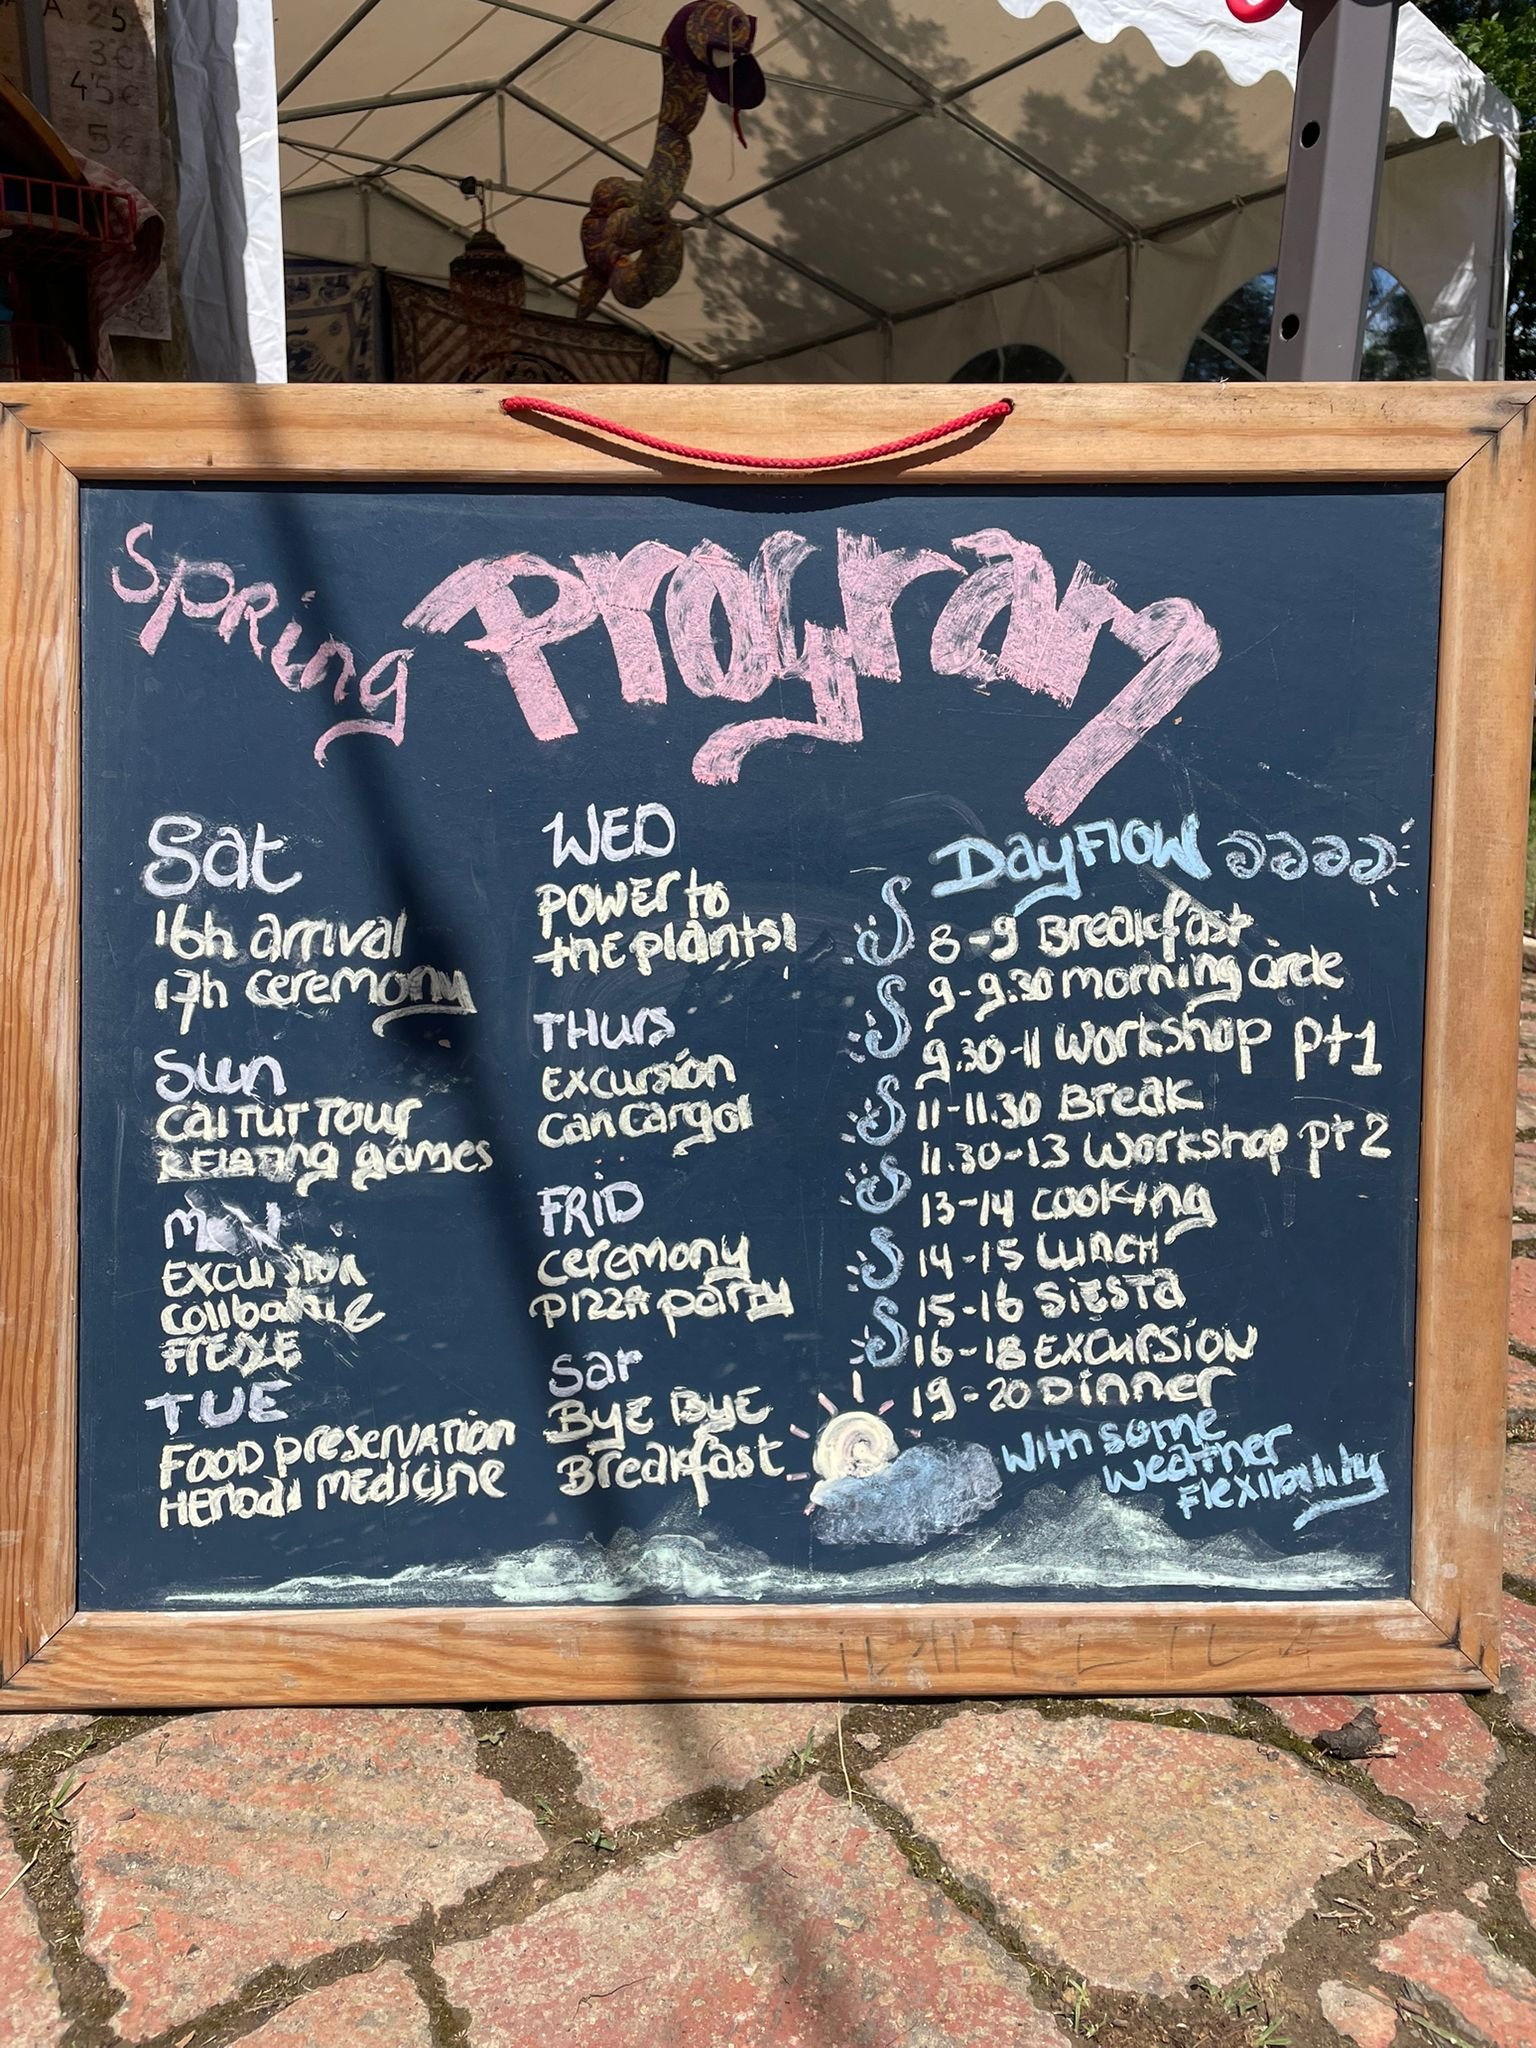 25
3€
4'5€
5€
Spring Program
Sat
16h arrival
17h ceremony
Sun
Cal TUT Tour
RELATING games
Excursion
FREIXE
TUE
FOOD preservation
Herbal medicine
WED
POWER to
the plants!
THURS
Excursion
Can Cargol
FRID
ceremony
PIZZA party
Sat
BYE BYE
Breakfast
Dayflow
8-9 Breakfast
9-9:30 morning circle
9.30-11 Workshop pt1
11-11.30 Break
11.30-13 Workshop pt2
13-14 cooking
14-15 LUNCH
15-16 SIESTA
16-18 EXCURSION
19-20 Dinner
With some
weather
Flexibility